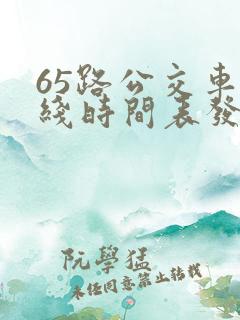 65路公交車
綫時間表發
阮學猛
未任同意禁止轉載